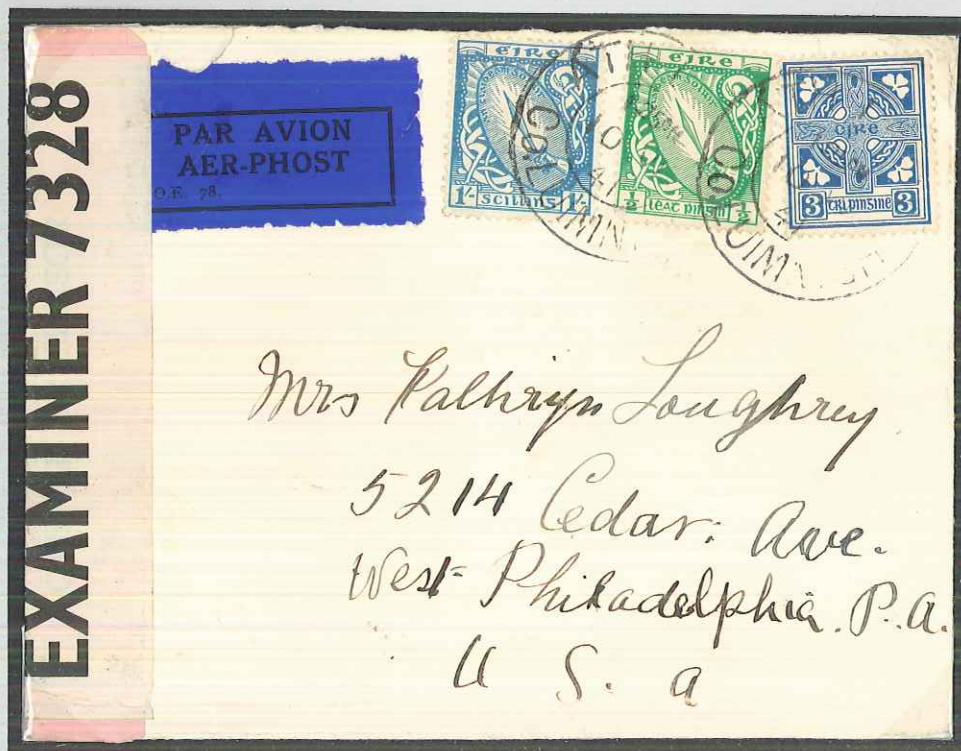 EXAMINER 7328
PAR AVION
AER-PHOST
O.E. 78.
éIRe
1/- scilling 1/-
éIRe
½ leat pinsin ½
éIRe
3 trí pinsine 3
CO. LUIMNIGH
41
CO. LUIMNIGH
41
Mrs Kathryn Loughrey
5214 Cedar. Ave.
West Philadelphia. P.A.
U S. a